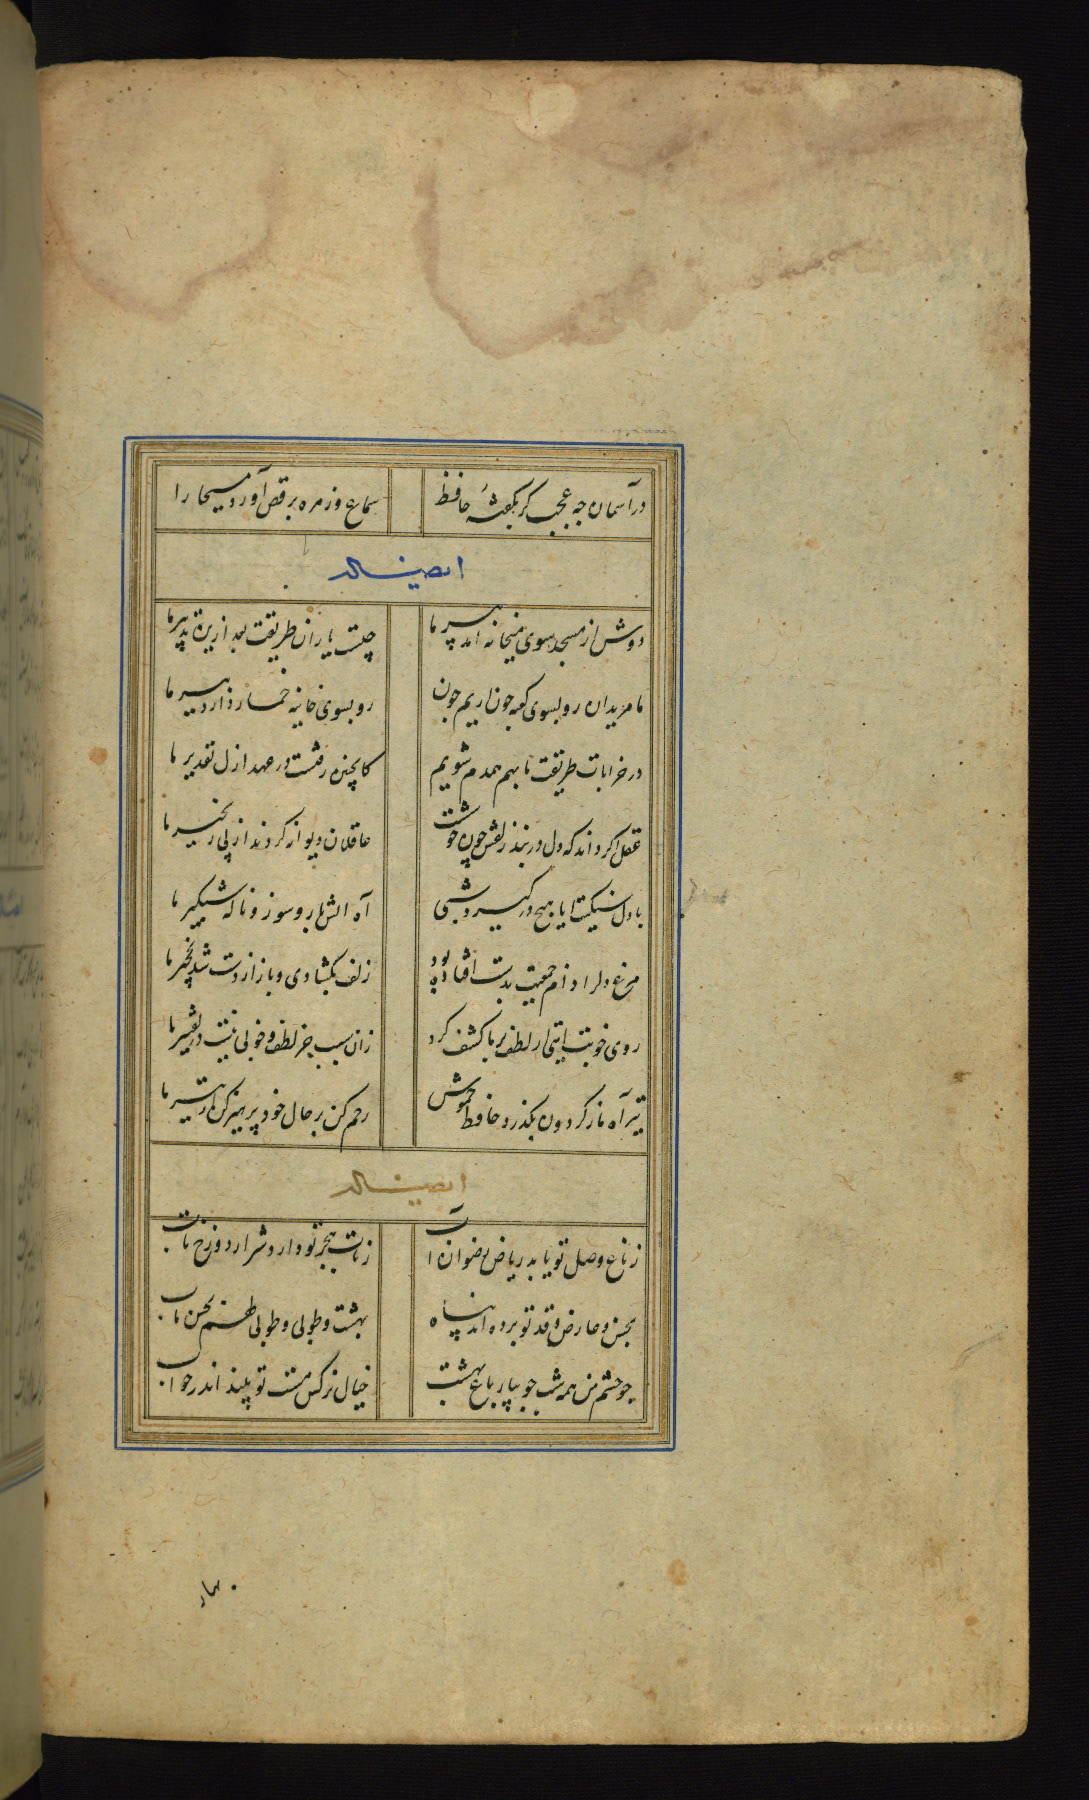 در آسمان چه عجب گر بگفتهٔ حافظ سماع زهره برقص آورد مسیحا را
ایضا له
دوش از مسجد سوی میخانه آمد پیر ما چیست یاران طریقت بعد ازین تدبیر ما
ما مریدان رو بسوی کعبه چون اریم چون رو بسوی خانه خمار دارد پیر ما
در خرابات طریقت ما بهم همدم شویم کاینچنین رفتست در عهد ازل تقدیر ما
عقل اگر داند که دل در بند زلفش چون خوشست عاقلان دیوانه کردند از پی زنجیر ما
با دل سنگینت ایا هیچ در گیرد شبی آه اتش بار و سوز و ناله شبگیر ما
مرغ دل را دام جمعیت بدست افتاده بود زلف بگشادی و باز از دست شد نخچیر ما
روی خوبت ایتی از لطف بر ما کشف کرد زان سبب جز لطف و خوبی نیست در تفسیر ما
تیر آه ما ز گردون بگذرد حافظ خموش رحم کن بر حال خود پرهیز کن از تیر ما
ایضا له
ز باغ وصل تو یابد ریاض رضوان آب ز تاب هجر تو دارد شرار دوزخ تاب
بحسن و عارض و قد تو برده اند پناه بهشت و طوبی و طوبی لهم و حسن مآب
چو چشم من همه شب جویبار باغ بهشت خیال نرگس مست تو بیند اندر خواب
بهار